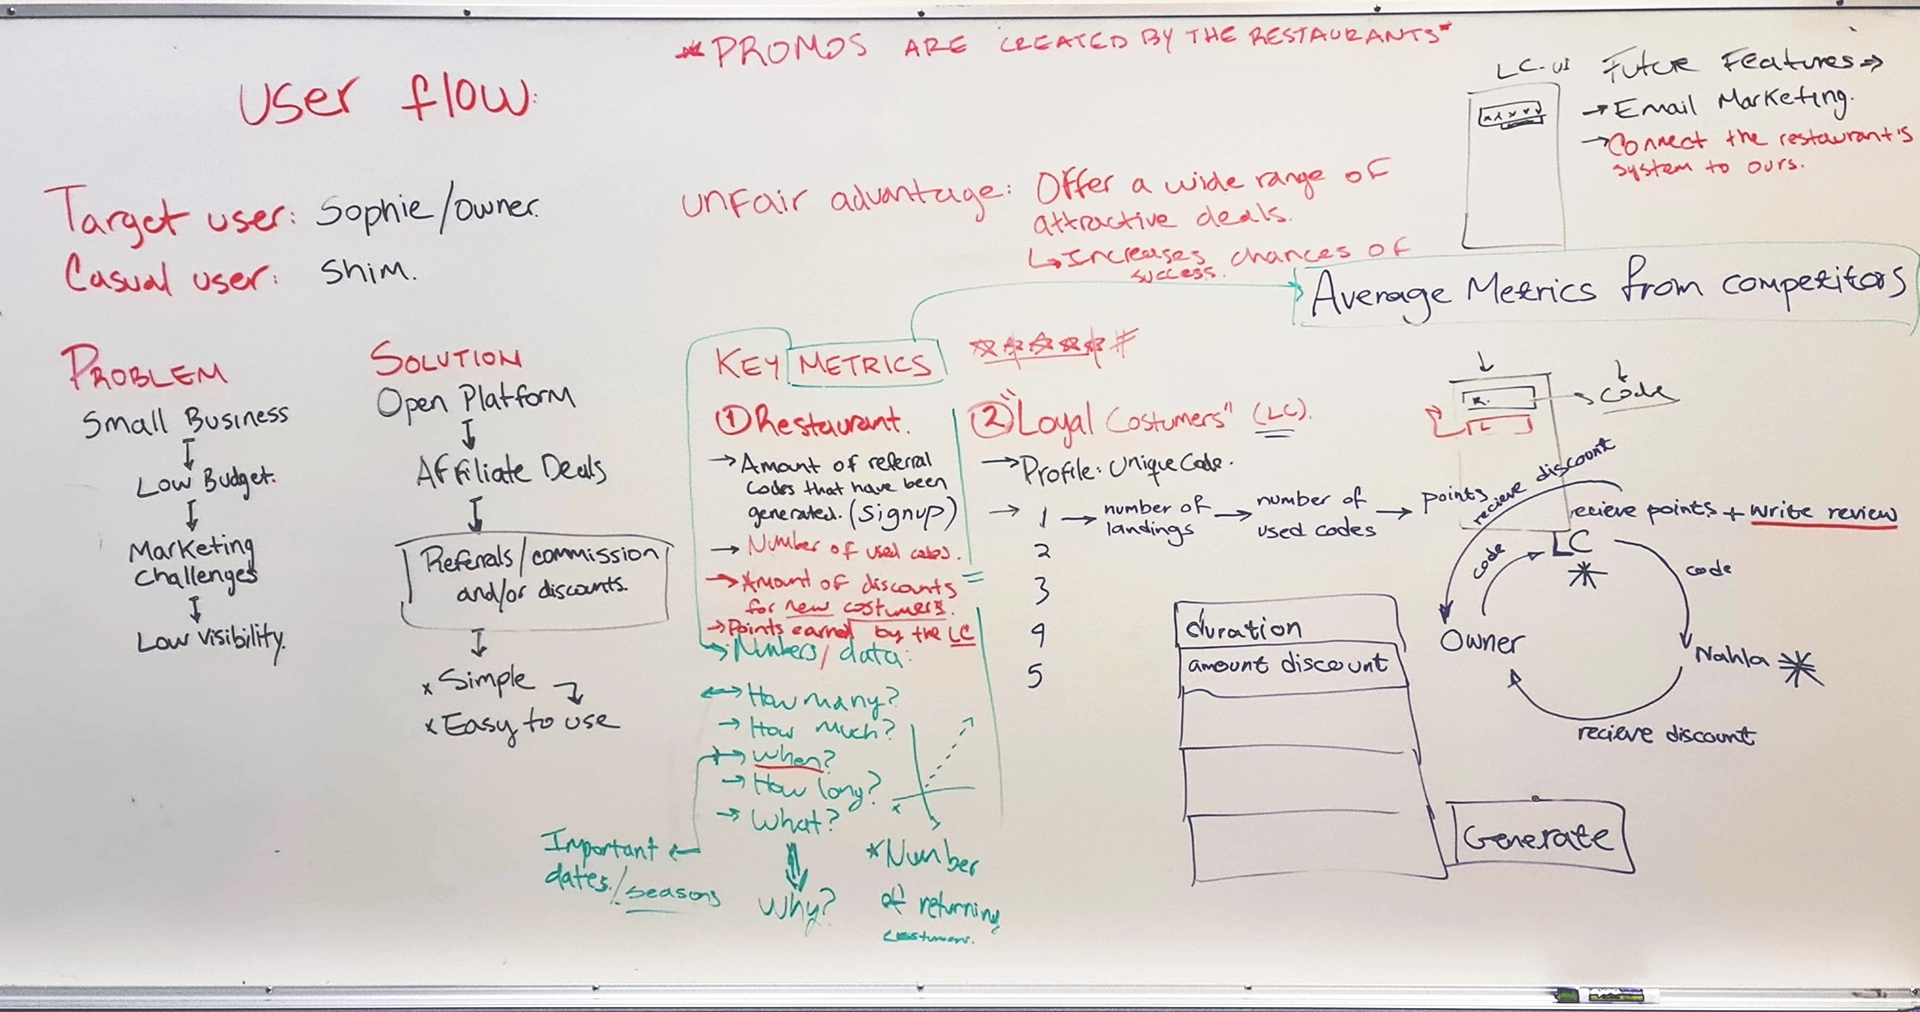 * PROMOS ARE CREATED BY THE RESTAURANTS"
User flow:
Target user: Sophie/owner.
Casual user: Shim.
unfair advantage: Offer a wide range of
attractive deals.
↳ Increases chances of
success.
LC-UI
Future Features →
→ Email Marketing.
→ Connect the restaurant's
system to ours.
Average Metrics from competitors
PROBLEM
Small Business
Low Budget.
Marketing
Challenges
Low visibility.
SOLUTION
Open Platform
Affiliate Deals
Referrals/commission
and/or discounts.
x Simple
x Easy to use
KEY METRICS
① Restaurant.
→ Amount of referral
codes that have been
generated. (Signup)
→ Number of used codes.
→ Amount of discounts
for new costumers.
→ Points earned by the LC
→ Numbers/data:
→ How many?
→ How Much?
→ When?
→ How long?
→ What?
Why?
Important
dates/seasons
* Number
of returning
costumers.
② "Loyal Costumers" (LC).
→ Profile: Unique Code.
→ 1 → number of landings → number of used codes → points
2
3
4
5
code
recieve discount
recieve points + write review
LC
code
code
Owner
Nahla
recieve discount
duration
amount discount
Generate